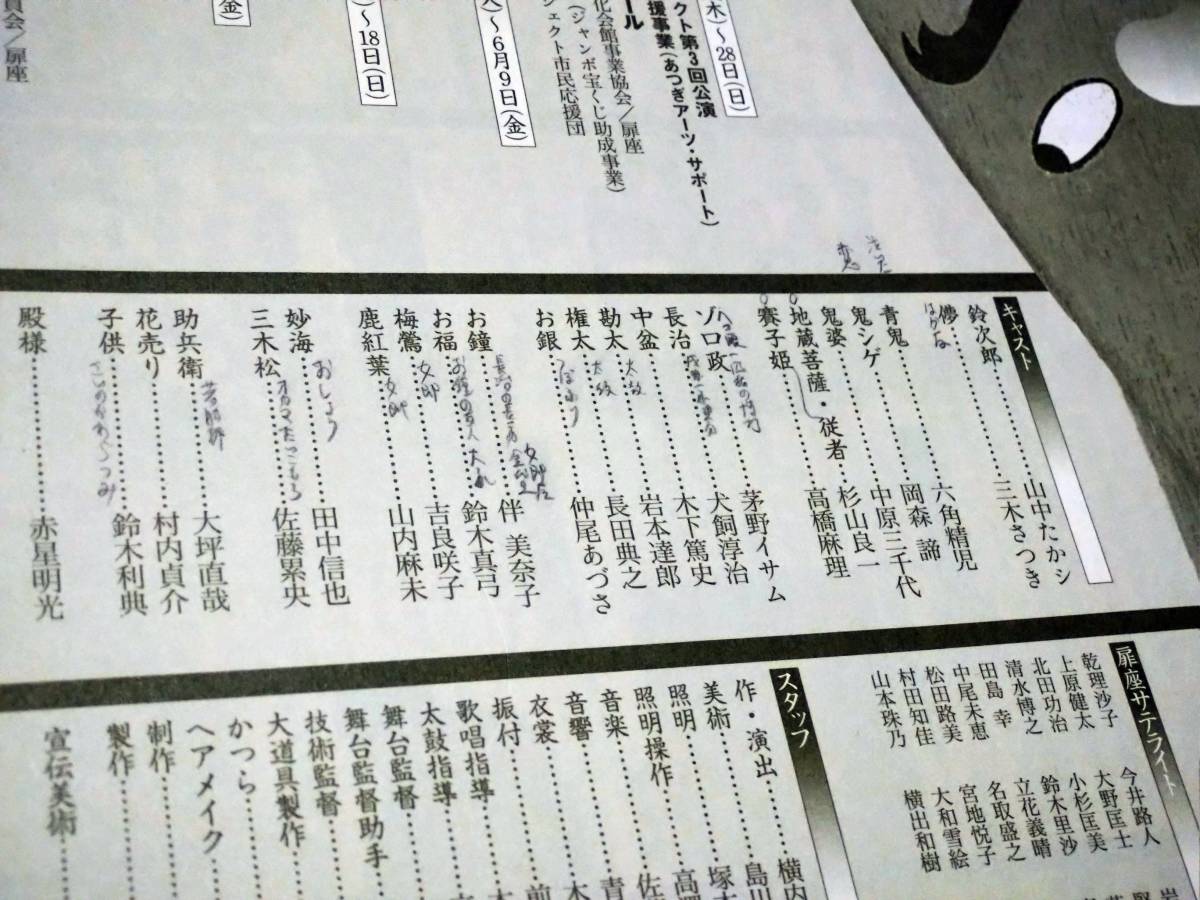 (木)〜28日(日)
クト第3回公演
援事業(あつぎアーツ・サポート)
ール
化会館事業協会/扉座
(ジャンボ宝くじ助成事業)
ジェクト市民応援団
〜6月9日(金)
〜18日(日)
(金)
員会/扉座
キャスト
鈴次郎……山中たかシ
儚……三木さつき
はかな
青鬼……六角精児
鬼シゲ……岡森 諦
鬼婆……中原三千代
地蔵菩薩・従者……杉山良一
賽子姫……高橋麻理
ゾロ政……茅野イサム
長治……犬飼淳治
中盆……木下篤史
勘太……岩本達郎
権太……長田典之
お銀……仲尾あづさ
つぼふり
お鐘……伴 美奈子
お福……鈴木真弓
梅鶯……吉良咲子
女郎
鹿紅葉……山内麻未
女郎
妙海……田中信也
おしょう
三木松……佐藤累央
助兵衛……大坪直哉
花売り……村内貞介
子供……鈴木利典
殿様……赤星明光
扉座サテライト
乾理沙子 今井路人
上原健太 大野匡士
北田功治 小杉匡美
清水博之 鈴木里沙
田島 幸 立花義晴
中尾未恵 名取盛之
松田路美 宮地悦子
村田知佳 大和雪絵
山本珠乃 横出和樹
スタッフ
作・演出……横内
美術……島川
照明……塚本
照明操作……高
音楽……佐
音響……青
衣裳……木
振付……前
歌唱指導
太鼓指導
舞台監督
舞台監督助手
技術監督
大道具製作
かつら
ヘアメイク
制作
製作
宣伝美術